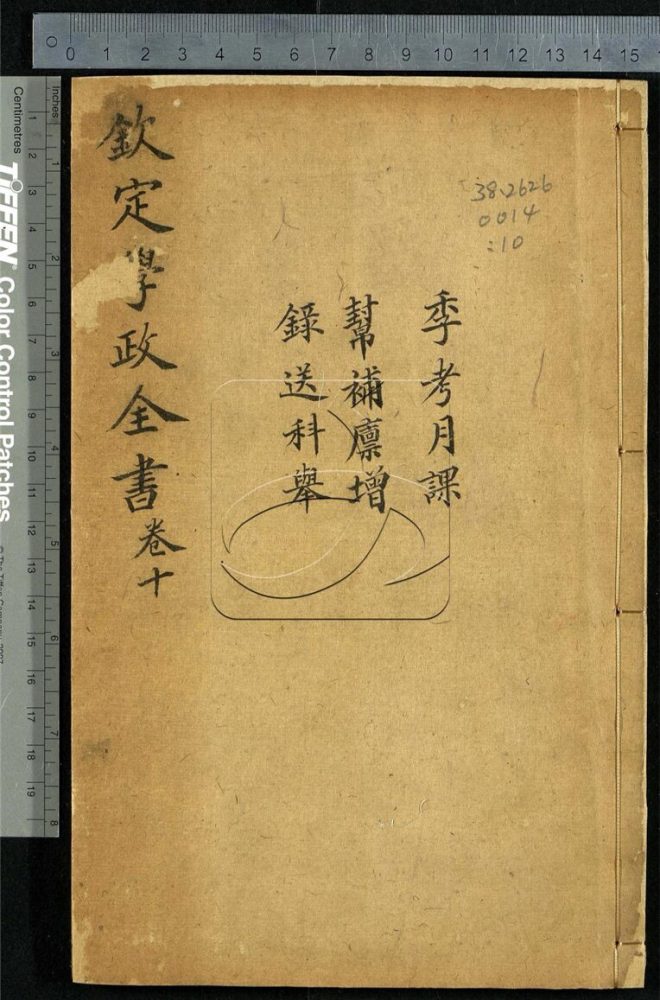 0 1 2 3 4 5 6 7 8 9 10 11 12 13 14 15
欽定學政全書卷十
38.2626
0014
:10
季考月課
幫補廪增
錄送科舉
Inches
1 2 3 4 5 6 7 8
Centimetres
1 2 3 4 5 6 7 8 9 10 11 12 13 14 15 16 17 18 19
TIFFEN® Color Control Patches